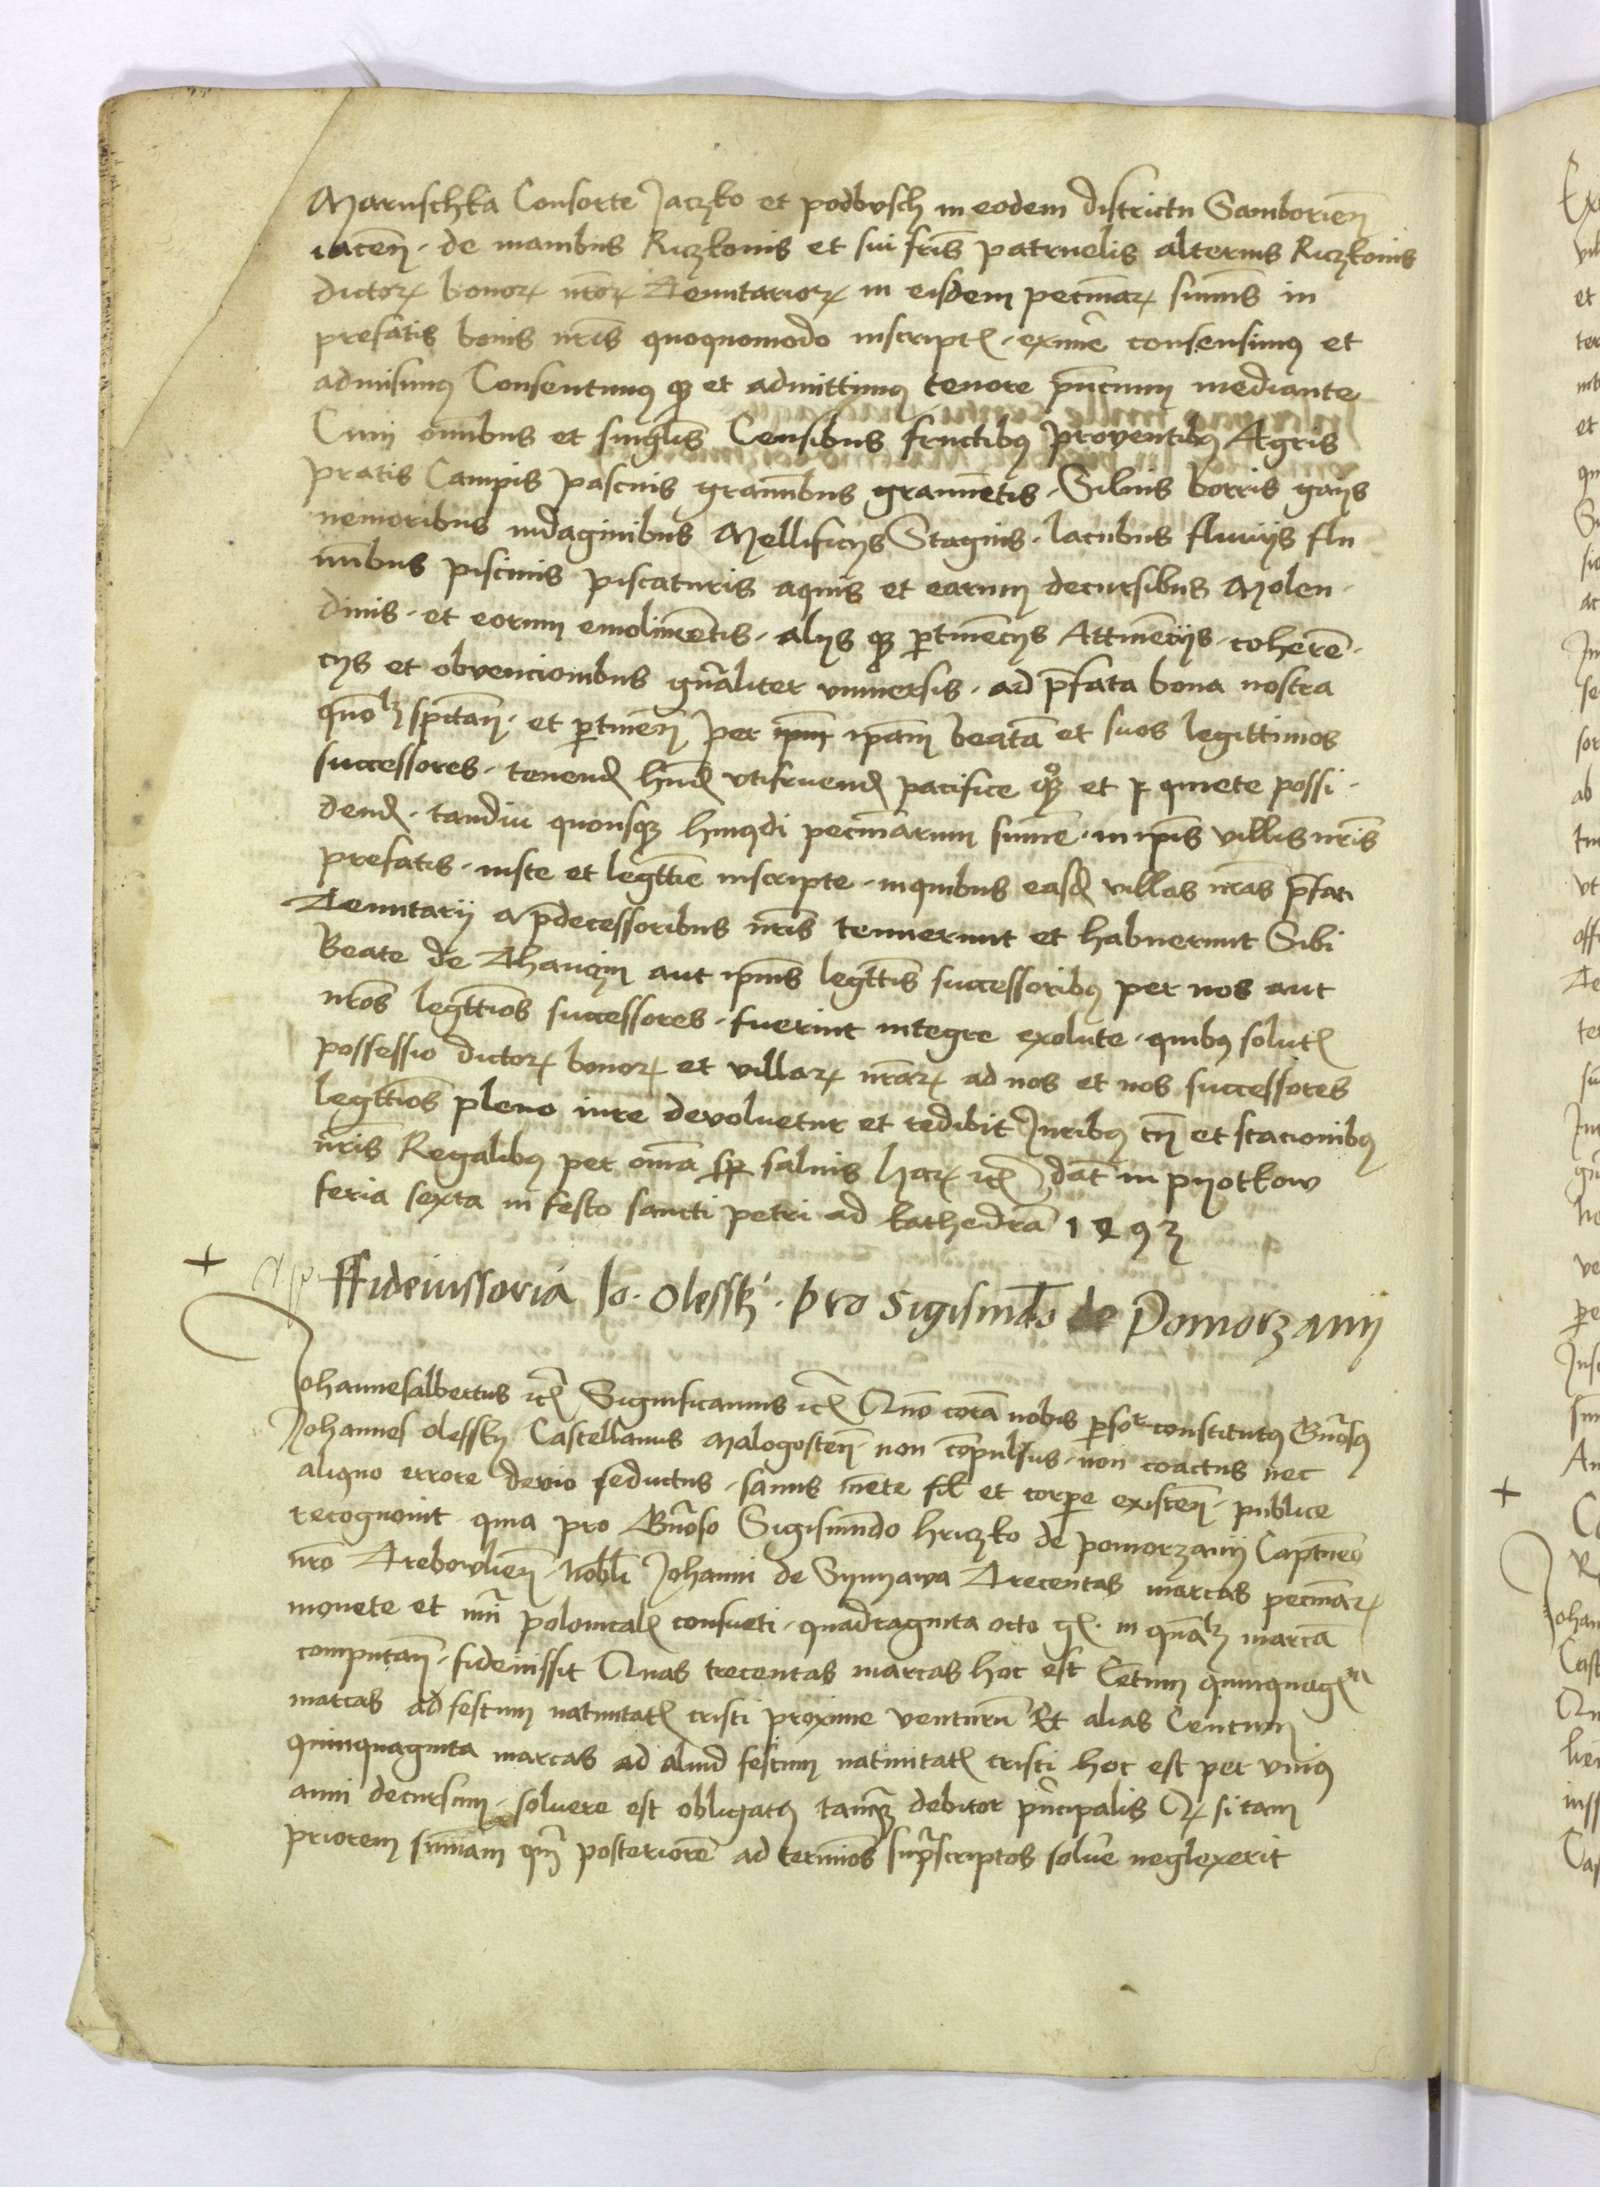 Maruschka Consorte Jaczko et podbusch in eodem districtu Samborien̄
iacen̄ · de manibus Ruczkonis et sui fr̄is patruelis alterius Ruczkonis
dictoꝝ bonoꝝ nr̄oꝝ Tenutarioꝝ in eisdem pecuniaꝝ sum̄is in
prefatis bonis nr̄is quoquomodo inscriptꝭ · eximē consensimꝰ et
admisimꝰ Consentimꝰ qꝫ et admittimꝰ tenore pn̄cium mediante
Cum om̄ibus et singl̄is Censibus fructibꝰ proventibꝰ Agris
pratis Campis pascuis gram̄ibus gramētis · Siluis borris gays
nemoribus indaginibus Mellificijs Stagnis · lacubus fluuijs flu
mībus piscinis piscaturis aquis et earum decursibus Molen ·
dinis · et eorum emolimētis · alijs qꝫ ꝑtinēcijs Attinēcijs · coherē ·
cijs et obvencionibus gn̄aliter vniuersis · ad p̄fata bona nostra
quōlꝫ sp̄ctan̄ · et ꝑtinen̄ per ip̄am beatā et suos legittimos
successores · tenendꝭ hn̄dꝭ vtifruendꝭ pacifice qꝫ et quiete possi ·
dendꝭ · tandiu quousqꝫ hmōdi pecuniarum sum̄e · in ip̄is villis nr̄is
prefatis · iuste et legttīe inscripte · inquibus easdꝭ villas nr̄as p̄fati
Tenutarij a p̄decessoribus nr̄is tenuerunt et habuerunt Sibi
Beate de aut ip̄ius legttīs successoribꝰ per nos aut
nr̄os legttīos successores · fuerint integre exolute · quibꝰ solutꝭ
possessio dictoꝝ bonoꝝ et villaꝝ nr̄aꝝ ad nos et nos successores
legttīos pleno iure devoluetur et redibit Juribꝰ tn̄ et stacionibꝰ
nr̄is Regalibꝰ per om̄a sp̄ saluis Haꝝ ꝛcꝭ dat̄ in pyotkow
feria sexta in festo sancti petri ad kathedrā 1493
+
ffideiussoria Jo · olesskj · pro Sigismūdo de Pomorzanij
Johannesalbertus ꝛcꝭ Significamus ꝛcꝭ Quō corā nobis ꝑsor constitutꝰ Gn̄osꝰ
Johannes olessky Castellanus Malogosten̄ · non cōpulsus · non coactus nec
aliquo errore devio seductus · sanus mēte sil̄ et corpe existen̄ · publice
recognouit · quia pro Gn̄oso Sigismūdo hriczko de pomorzanij Capitaneo
nr̄o Trebowlien̄ · Nobli Johanni de Synyawa Trecentas marcas pecuniaꝝ
monete et nūi polonicalꝭ consueti · quadraginta octo gꝭ · in quālꝫ marcā
computan̄ · fideiussit Quas trecentas marcas hoc est Cētum quinquagꝭta
marcas ad festum natiuitatꝭ cristi proxime venturū Et alias Centum
quinquaginta marcas ad aliud festum natiuitatꝭ cristi hoc est per vniꝰ
anni decursum · soluere est obligatꝰ tamqꝫ debitor pn̄cipalis Qꝫ si tam
priorem sum̄am qm̄ posteriorē ad termīos sup̄scriptos solue neglexerit